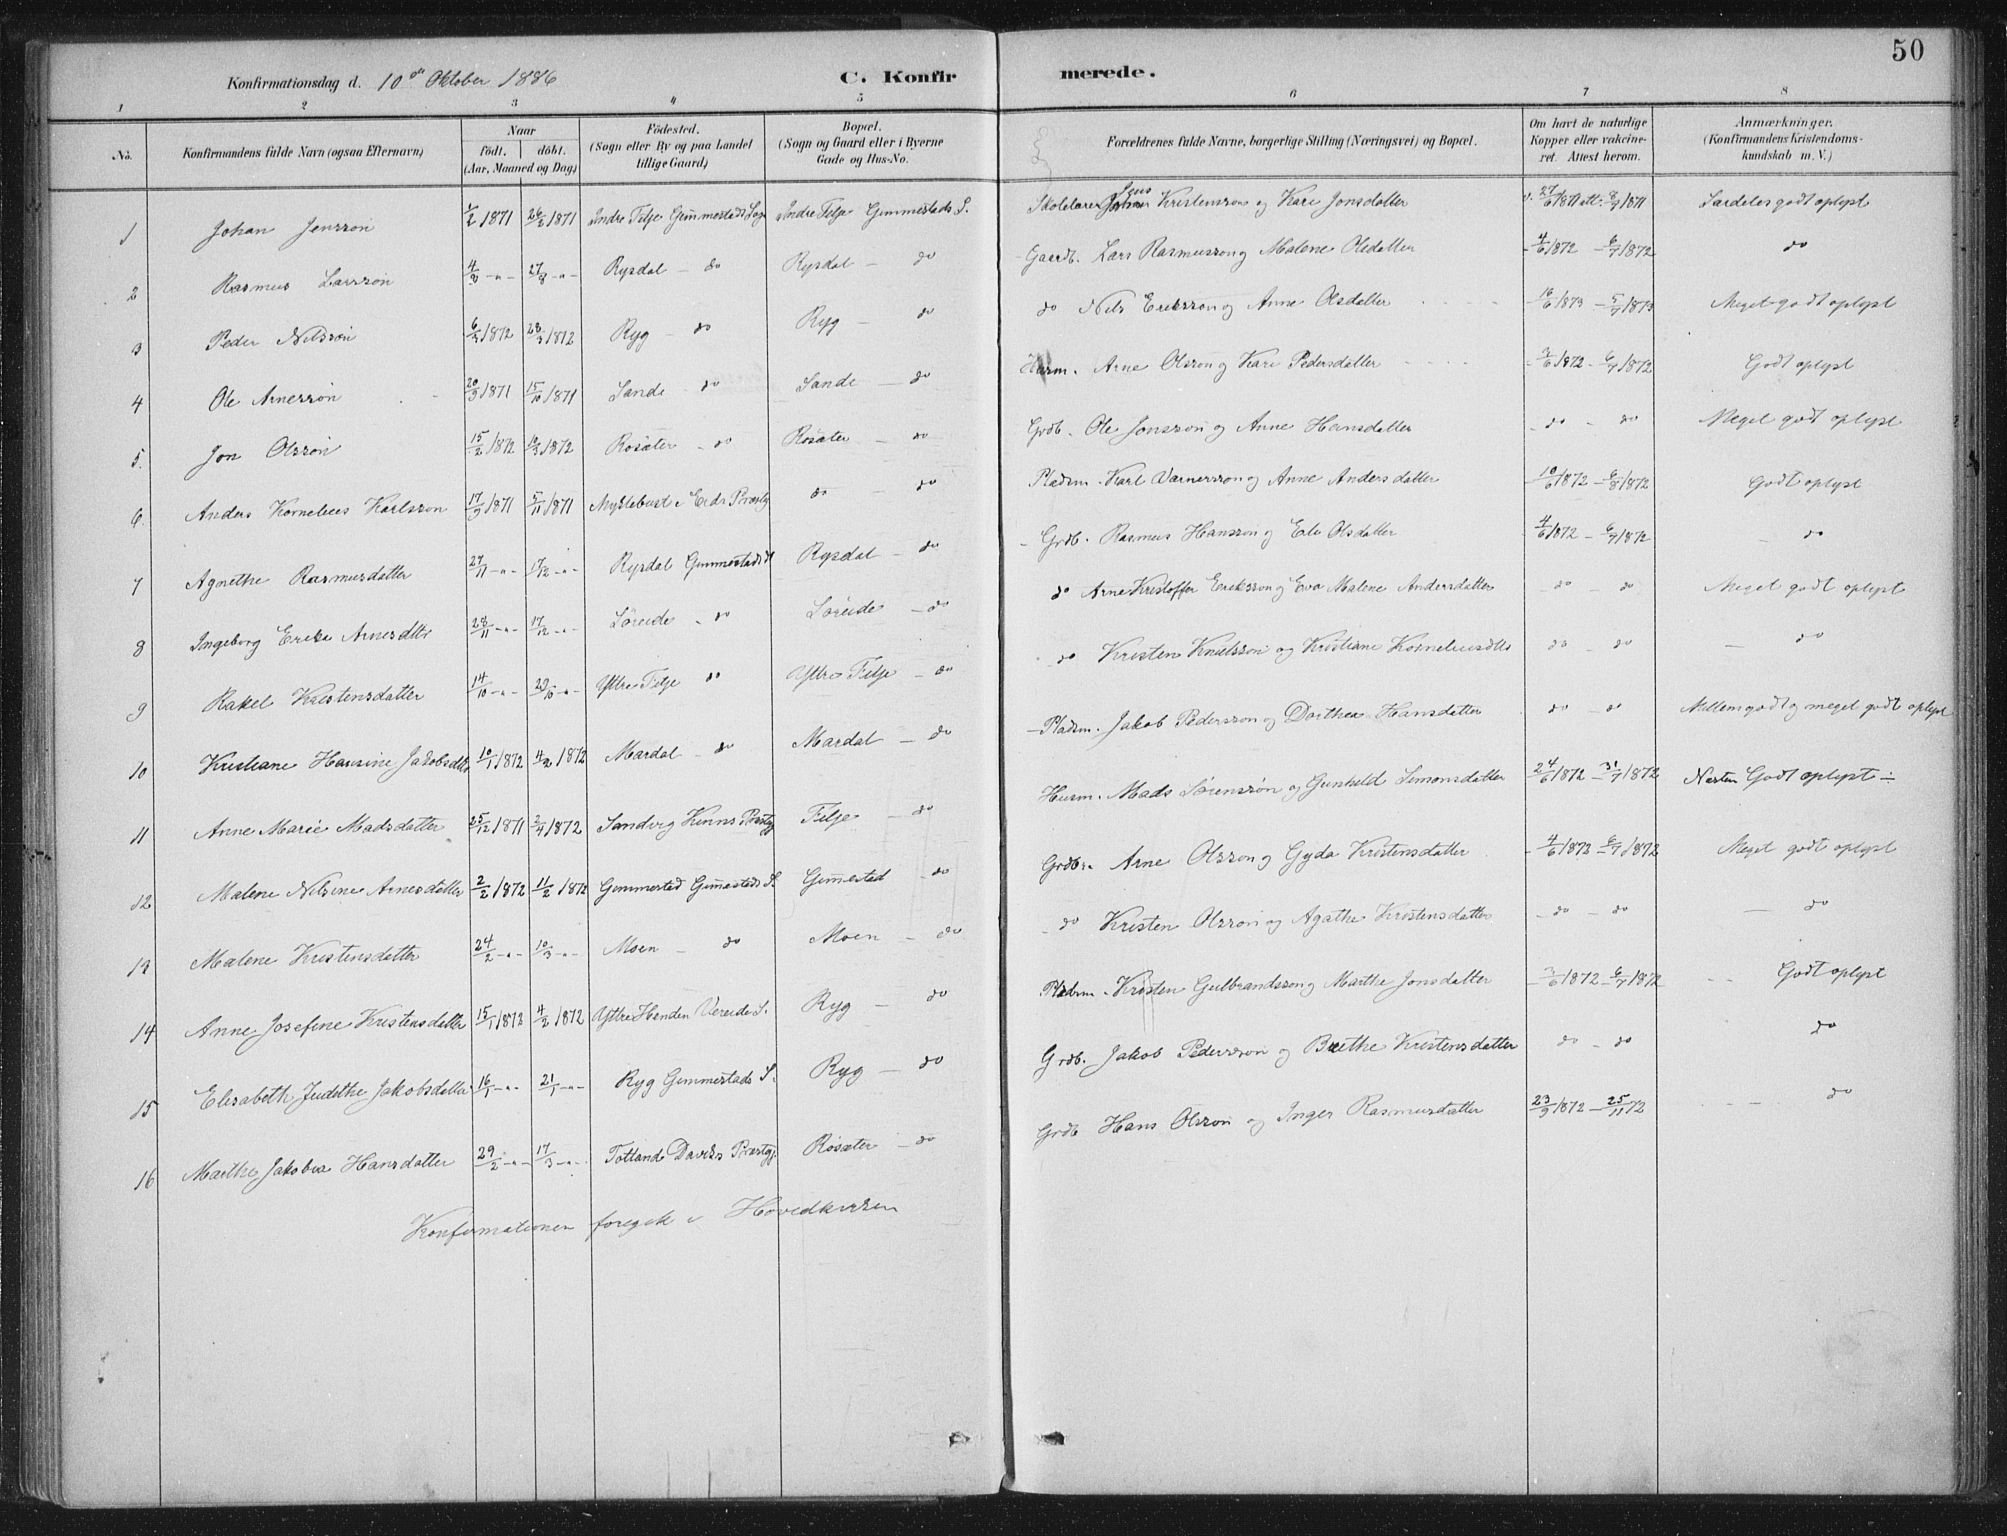 50
Konfirmationsdag d. 10de Oktober 1886 C. Konfirmerede.
1 2 3 4 5 6 7 8
No. Konfirmandens fulde Navn (ogsaa Efternavn) Naar födt. döbt. (Aar, Maaned og Dag) Födested. (Sogn eller By og paa Landet tillige Gaard) Bopæl. (Sogn og Gaard eller i Byerne Gade og Hus-No. Forældrenes fulde Navne, borgerlige Stilling (Næringsvei) og Bopæl. Om havt de naturlige Kopper eller vakcineret. Attest herom. Anmærkninger. (Konfirmandens Kristendomskundskab m. V.)
1 Johan Jensson 1/2 1871 26/2 1871 Indre Felje Gimmestads Sogn Indre Felje Gimmestads S. Skolelærer Jens Kristensson og Kari Jonsdatter v. 27/6 1871 att. 8/7 1871 Særdeles godt oplyst
2 Rasmus Larsson 4/8 -"- 27/8 -"- Rysdal - do Rysdal - do Gaardb. Lars Rasmusson og Malene Oledatter 4/6 1872 - 6/7 1872 do
3 Peder Nilsson 6/3 1872 23/3 1872 Ryg - do Ryg - do do Nils Eriksson og Anne Olsdatter 16/6 1873 - 5/7 1873 Meget godt oplyst
4 Ole Arnesson 20/9 1871 15/10 1871 Sande - do Sande - do Husm. Arne Olsson og Kari Pedersdatter 3/6 1872 - 6/7 1872 Godt oplyst
5. Jon Olsson 15/2 1872 10/3 1872 Rosæter - do Rosæter - do Grdb. Ole Jonsson og Anne Hansdatter - do - do Meget godt oplyst
6 Anders Kornelius Karlsson 17/9 1871 5/11 1871 Myklebust i Eids Præstg do - do Pladsm. Karl Varnersson og Anne Andersdatter 10/6 1872 - 6/8 1872 Godt oplyst
7 Agnethe Rasmusdatter 27/11 -"- 17/12 -"- Rysdal Gimmestads S Rysdal - do Grdb. Rasmus Hansson og Eli Olsdatter 4/6 1872 - 6/7 1872 - do
8 Ingeborg Erika Arnesdtr 28/11 -"- 17/12 -"- Söreide - do Söreide - do do Arne Kristoffer Eriksson og Eva Malene Andersdatter do - do Meget godt oplyst
9 Rakel Kristensdatter 14/10 -"- 29/10 -"- Yttre Felje do Yttre Felje - do do Kristen Knutsson og Kristiane Korneliusdtr do do - do
10 Kristiane Hansine Jakobsdtr 10/1 1872 4/2 1872 Mardal - do Mardal - do Pladsm. Jakob Pedersson og Dorthea Hansdatter do - do Mellem godt og meget godt oplyst
11 Anne Marie Madsdatter 25/12 1871 2/4 1872 Sandvig Kinns Præstg Felje - do Husm. Mads Sörensson og Gunhild Simonsdatter 24/6 1872 - 31/7 1872 Næsten Godt oplyst
12 Malene Nilsine Arnesdatter 2/2 1872 11/2 1872 Gimmestad Gimmestads S. Gimmestad - do Grdb. Arne Olsson og Gyda Kristensdatter 4/6 1872 - 6/7 1872 Meget godt oplyst
13 Malene Kristensdatter 24/2 -"- 10/3 -"- Moen - do Moen - do - do Kristen Olsson og Agathe Kristensdatter - do - do - do
14 Anne Josefine Kristensdatter 15/1 1872 4/2 1872 Yttre Henden Vereide S. Ryg - do Pladsm. Kristen Gulbrandsson og Marthe Jonsdatter 3/6 1872 - 6/7 1872 Godt oplyst
15 Elisabeth Judithe Jakobsdatter 16/1 -"- 21/1 -"- Ryg Gimmestads S. Ryg - do Grdb. Jakob Pedersson og Brithe Kristensdatter do - do do
16 Marthe Jakobea Hansdatter 29/2 -"- 17/3 -"- Totland Daviks Præstgj. Rosæter - do Grdb Hans Olsson og Inger Rasmusdatter 23/9 1872 - 25/11 72 do
Konfirmationen foregik i Hovedkirken